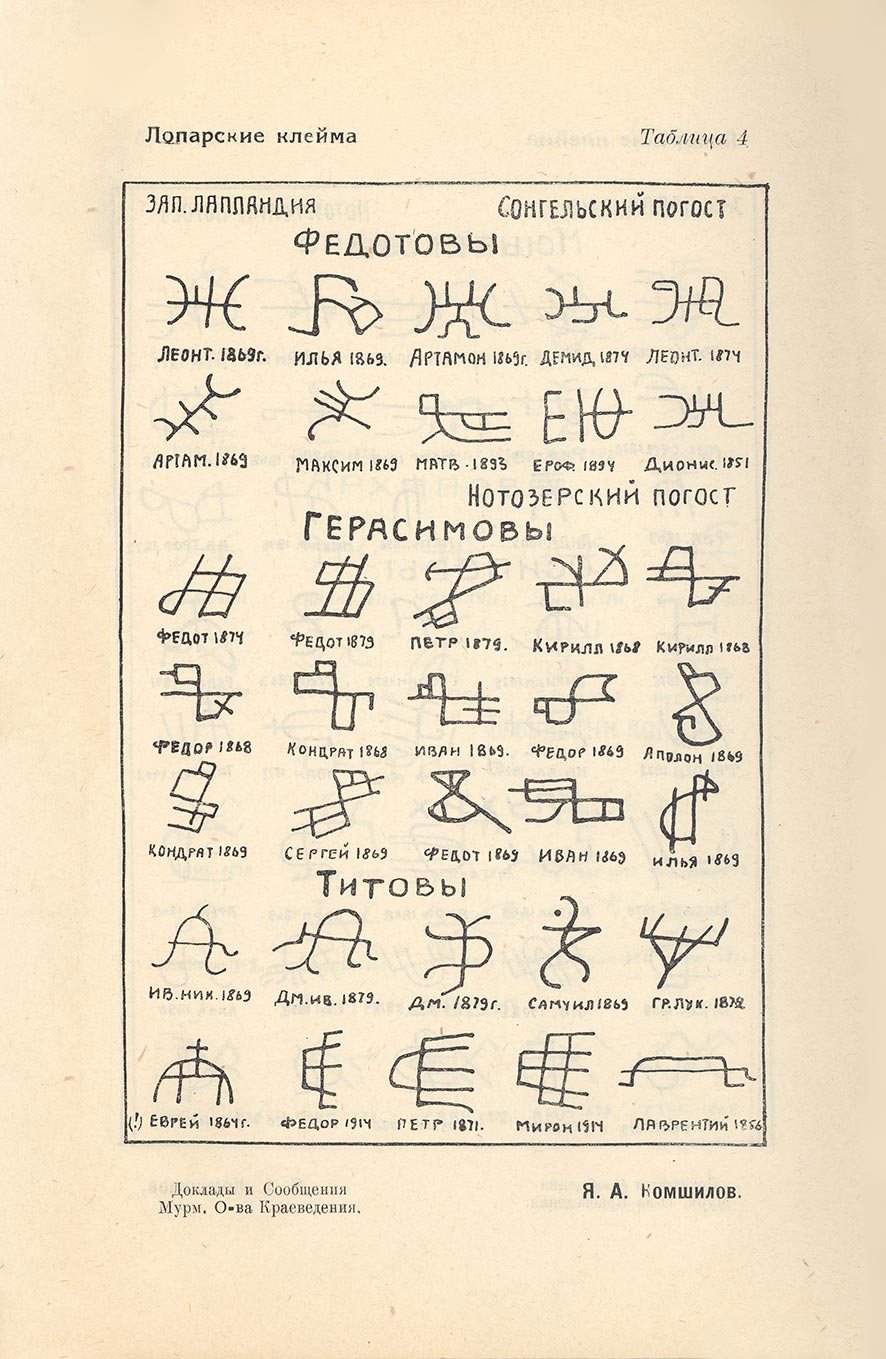 Лопарские клейма Таблица 4
ЗАП. ЛАПЛАНДИЯ СОНГЕЛЬСКИЙ ПОГОСТ
ФЕДОТОВЫ
ЛЕОНТ. 1869г. ИЛЬЯ 1869. АРТАМОН 1869г. ДЕМИД 1874 ЛЕОНТ. 1874
АРТАМ. 1869 МАКСИМ 1869 МАТВ. 1893 ЕРОФ. 1894 ДИОНИС. 1851
НОТОЗЕРСКИЙ ПОГОСТ
ГЕРАСИМОВЫ
ФЕДОТ 1874 ФЕДОТ 1879 ПЕТР 1879. КИРИЛЛ 1868 КИРИЛЛ 1868
ФЕДОР 1868 КОНДРАТ 1868 ИВАН 1869. ФЕДОР 1869 АПОЛОН 1869
КОНДРАТ 1869 СЕРГЕЙ 1869 ФЕДОТ 1869 ИВАН 1869 ИЛЬЯ 1869
ТИТОВЫ
ИВ. НИК. 1869 ДМ. ИВ. 1879. ДМ. 1879г. САМУИЛ 1869 ГР. ЛУК. 1872
(!) ЕВРЕЙ 1864г. ФЕДОР 1914 ПЕТР 1871. МИРОН 1914 ЛАВРЕНТИЙ 1856
Доклады и Сообщения Я. А. Комшилов.
Мурм. О-ва Краеведения.